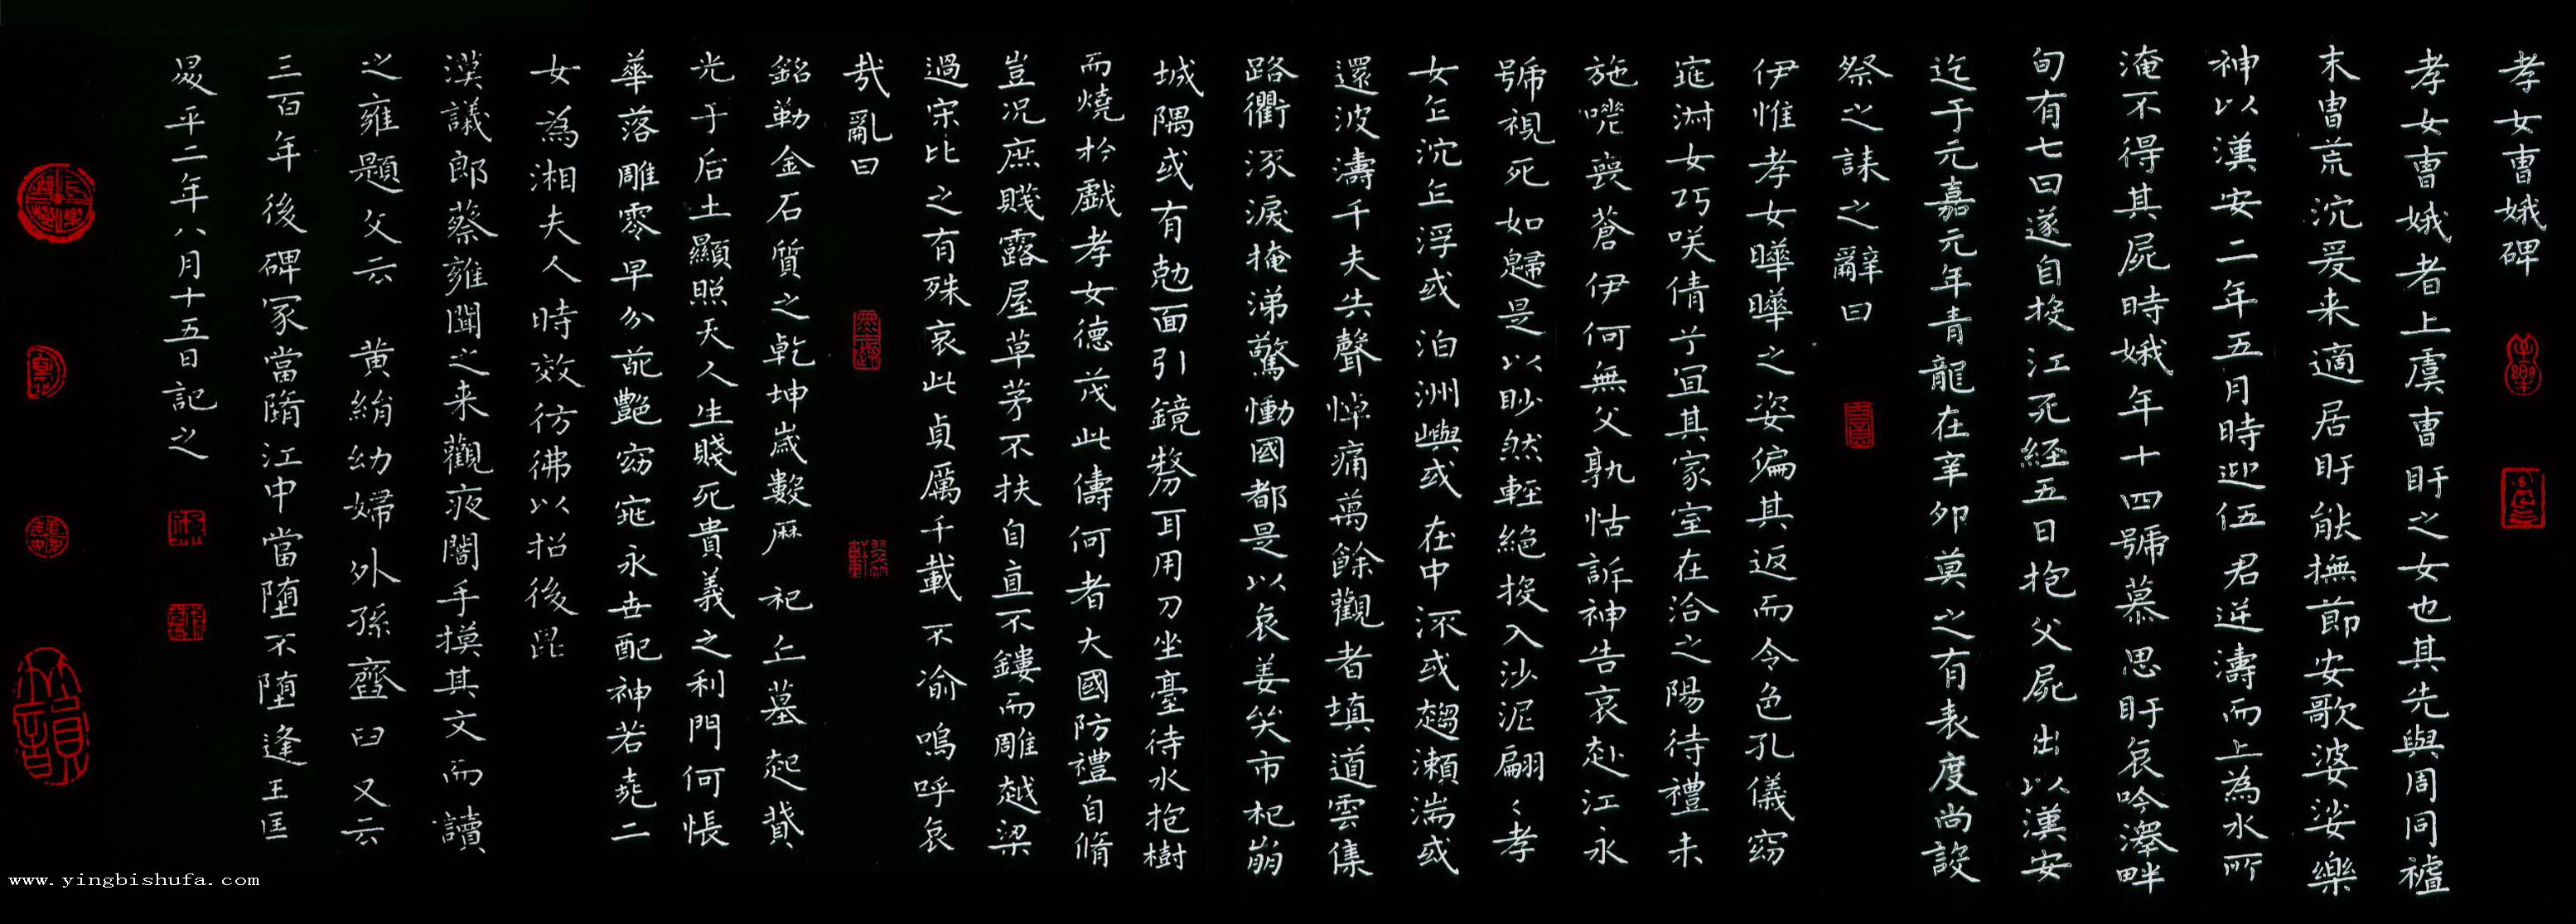 孝女曹娥碑
孝女曹娥者上虞曹盱之女也其先與周同祖
末胄荒沉爰来適居盱能撫節安歌婆娑樂
神以漢安二年五月時迎伍君逆濤而上為水所
淹不得其屍時娥年十四號慕思盱哀吟澤畔
旬有七日遂自投江死経五日抱父屍出以漢安
迄于元嘉元年青龍在辛卯莫之有表度尚設
祭之誄之辭曰
伊惟孝女曄曄之姿偏其返而令色孔儀窈
窕淑女巧咲倩兮宜其家室在洽之陽待禮未
施嗟喪蒼伊何無父孰怙訴神告哀赴江永
號視死如歸是以眇然輕絕投入沙泥翩〻孝
女乍沉乍浮或泊洲嶼或在中流或趨瀬湍或
還波濤千夫共聲悼痛萬餘觀者填道雲集
路衢流淚掩涕驚慟國都是以哀姜哭市杞崩
城隅或有勊面引鏡剺耳用刀坐臺待水抱樹
而燒於戲孝女德茂此儔何者大國防禮自脩
豈況庶賤露屋草茅不扶自直不鏤而雕越梁
過宋比之有殊哀此貞厲千載不渝嗚呼哀
哉亂曰
銘勒金石質之乾坤嵗數厤祀丘墓起墳
光于后土顯照天人生賤死貴義之利門何悵
華落雕零早分葩艷窈窕永世配神若堯二
女為湘夫人時效彷彿以招後昆
漢議郎蔡雍聞之来觀夜闇手摸其文而讀
之雍題文云 黄絹幼婦外孫齏臼又云
三百年後碑冢當墮江中當墮不墮逢王匡
昇平二年八月十五日記之
www.yingbishufa.com